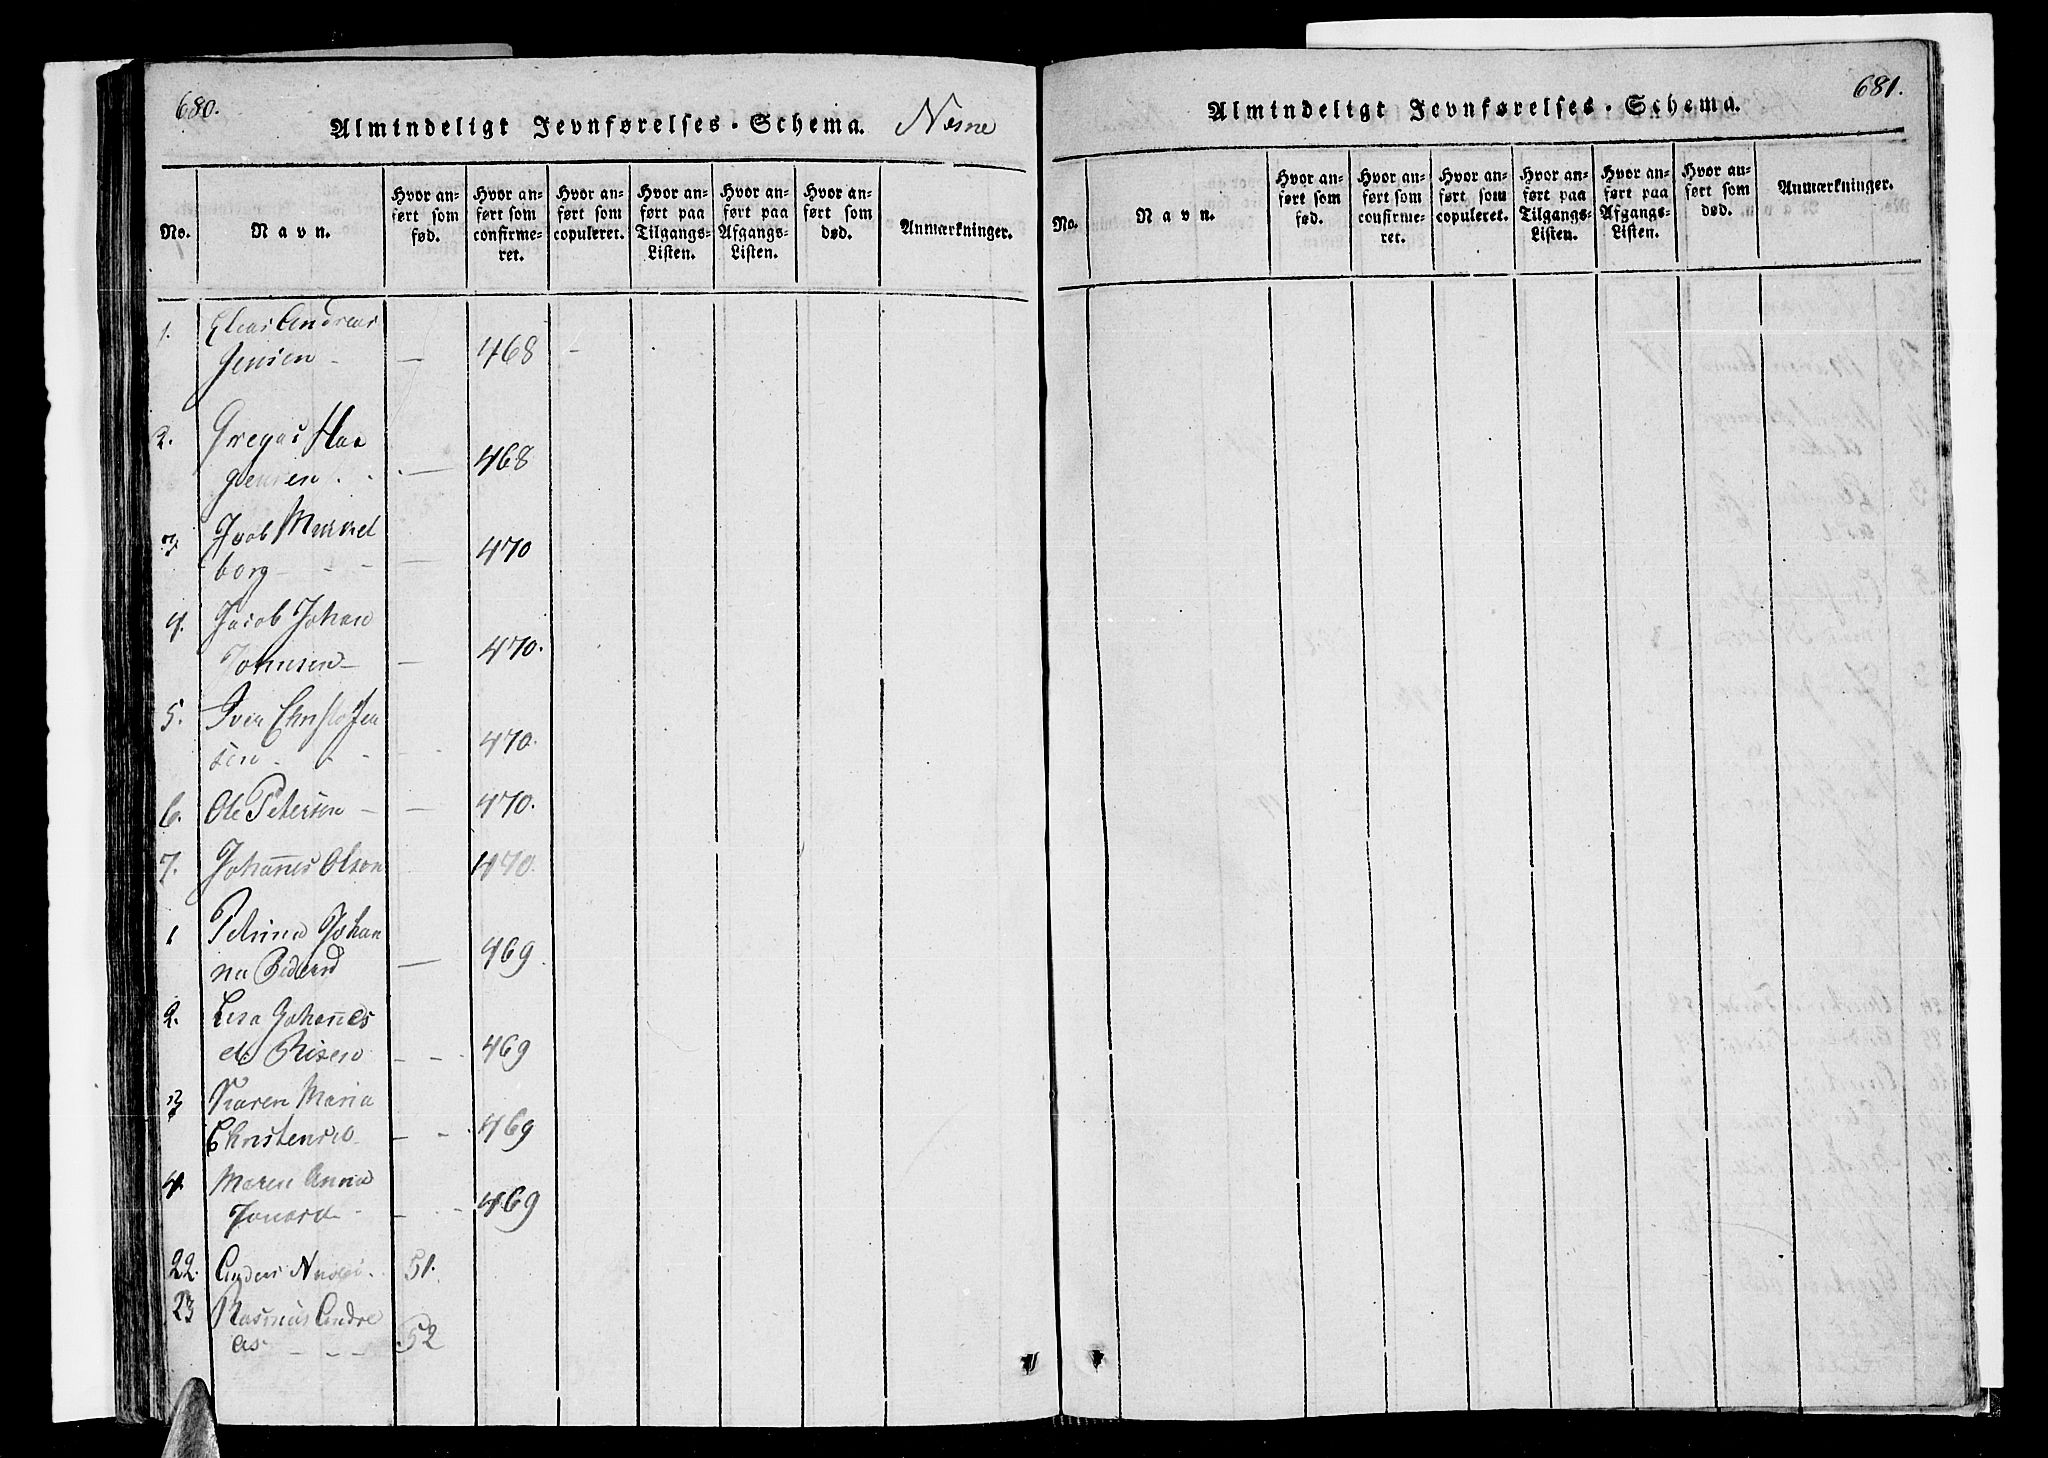 680.
Almindeligt Jevnførelses-Schema. Nesne
No.
Navn.
Hvor an-
ført som
fød.
Hvor an-
ført som
confirme-
ret.
Hvor an-
ført som
copuleret.
Hvor an-
ført paa
Tilgangs-
Listen.
Hvor an-
ført paa
Afgangs-
Listen.
Hvor an-
ført som
død.
Anmærkninger.
1. Elias Andreas
Jensen - — 468 -
2. Gregas Haa
gensen . — 468
3. Jacob Mürkel
borg - - - — 470
4. Jacob Johan
Jonnsen — — 470.
5. Iver Christofen
sen - - - 470.
6. Ole Petersen - — 470.
7. Johannes Olsen 470.
1 Petrina Johan
na — 469.
2. Lisa Johannes
d. Risen — — 469
3 Karen Maria
Christensen — - 469
4. Maren Anna
Jonasd. - - 469
22. Anders 51.
23 Rasmus Andre
as - - - 52
681.
Almindeligt Jevnførelses-Schema.
No.
Navn.
Hvor an-
ført som
fød.
Hvor an-
ført som
confirme-
ret.
Hvor an-
ført som
copuleret.
Hvor an-
ført paa
Tilgangs-
Listen.
Hvor an-
ført paa
Afgangs-
Listen.
Hvor an-
ført som
død.
Anmærkninger.